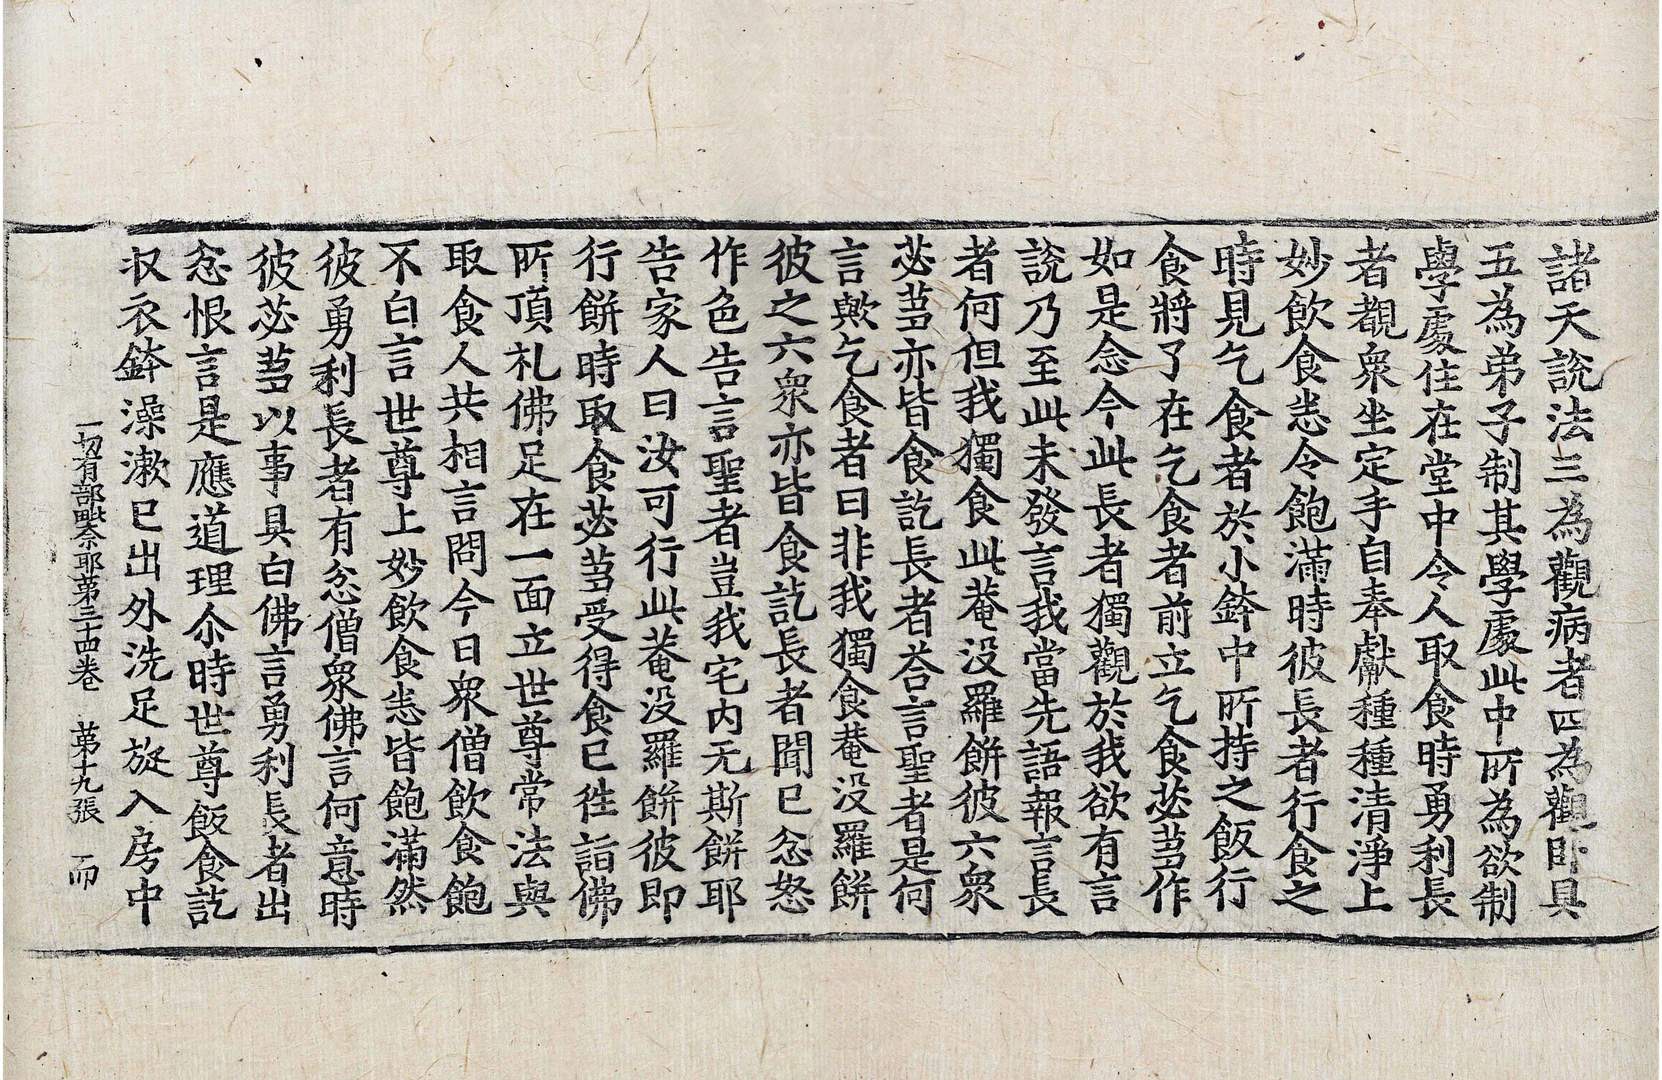 諸天說法三為觀病者四為觀卧具
五為弟子制其學處此中所為欲制
學處住在堂中令人取食時勇利長
者觀衆坐定手自奉獻種種清淨上
妙飲食悉令飽滿時彼長者行食之
時見乞食者於小鉢中所持之飯行
食將了在乞食者前立乞食苾芻作
如是念今此長者獨觀於我欲有言
說乃至此未發言我當先語報言長
者何但我獨食此菴没羅餅彼六衆
苾芻亦皆食訖長者荅言聖者是何
言歟乞食者曰非我獨食菴没羅餅
彼之六衆亦皆食訖長者聞已忿怒
作色告言聖者豈我宅内无斯餅耶
告家人曰汝可行此菴没羅餅彼即
行餅時取食苾芻受得食已徃詣佛
所頂礼佛足在一面立世尊常法與
取食人共相言問今日衆僧飲食飽
不白言世尊上妙飲食悉皆飽滿然
彼勇利長者有忿僧衆佛言何意時
彼苾芻以事具白佛言勇利長者出
忿恨言是應道理尒時世尊飯食訖
収衣鉢澡漱已出外洗足旋入房中
一切有部毗奈耶第三十四卷　第十九張　而